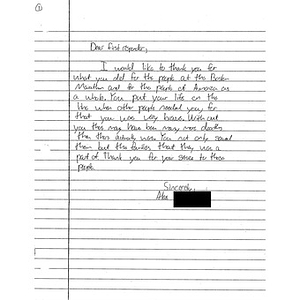 ①
Dear first responder,
I would like to thank you for
what you did for the people at the Boston
Marathon and for the people of America as
a whole. You put your life on the
line when other people needed you, for
that you are very brave. Without
you there may have been many more deaths
than there actually were. You not only saved
them but the families that they were a
part of. Thank you for your service to these
people.
Sincerely,
Alex